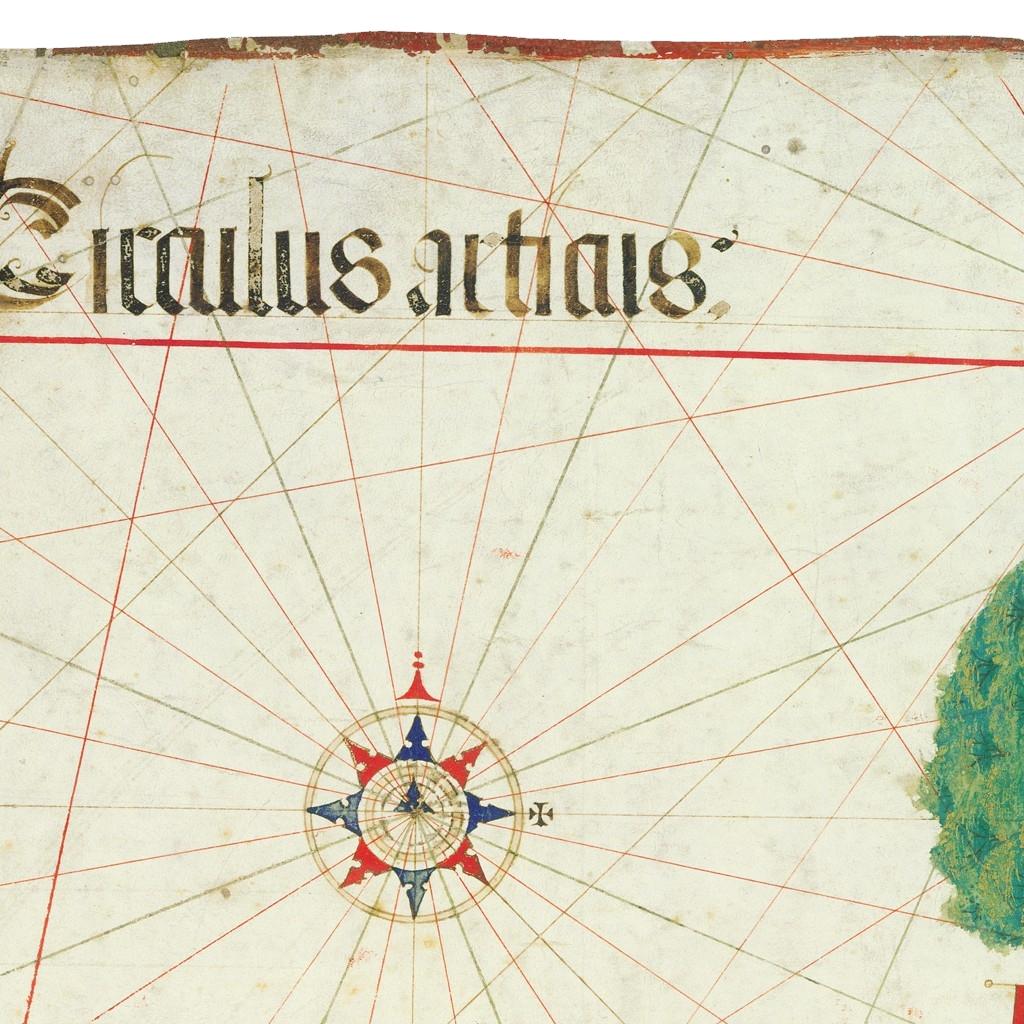 Circulus articus: